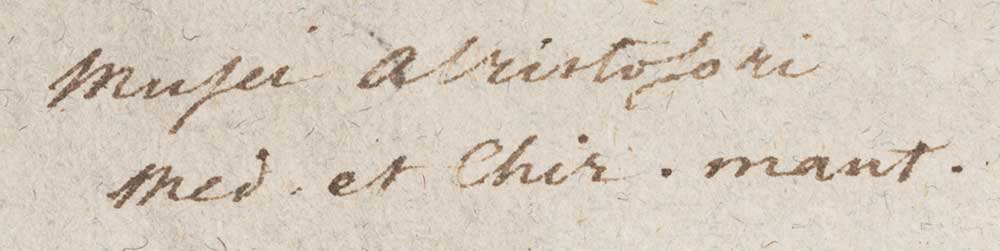 Musei A Cristofori
Med. et Chir. mant.